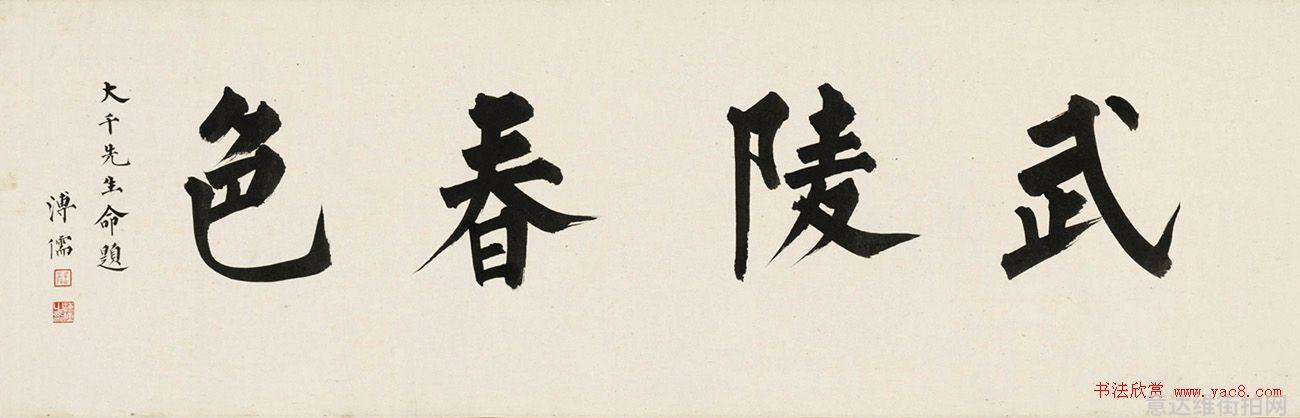 武陵春色
大千先生命題
溥儒
书法欣赏 www.yac8.com
意达维街拍网